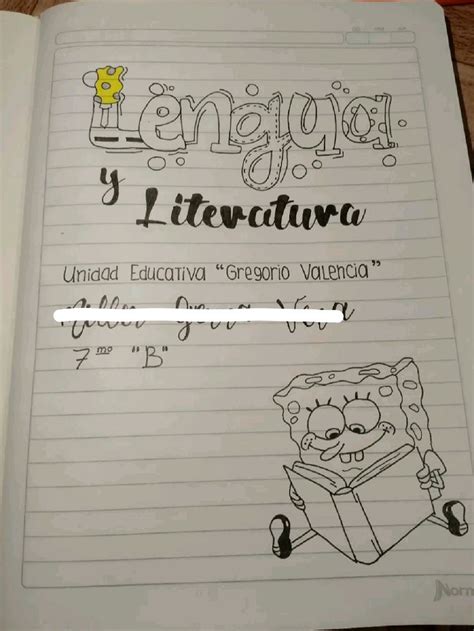 Lengua
y
Literatura
Unidad Educativa "Gregorio Valencia"
7mo "B"
Norm